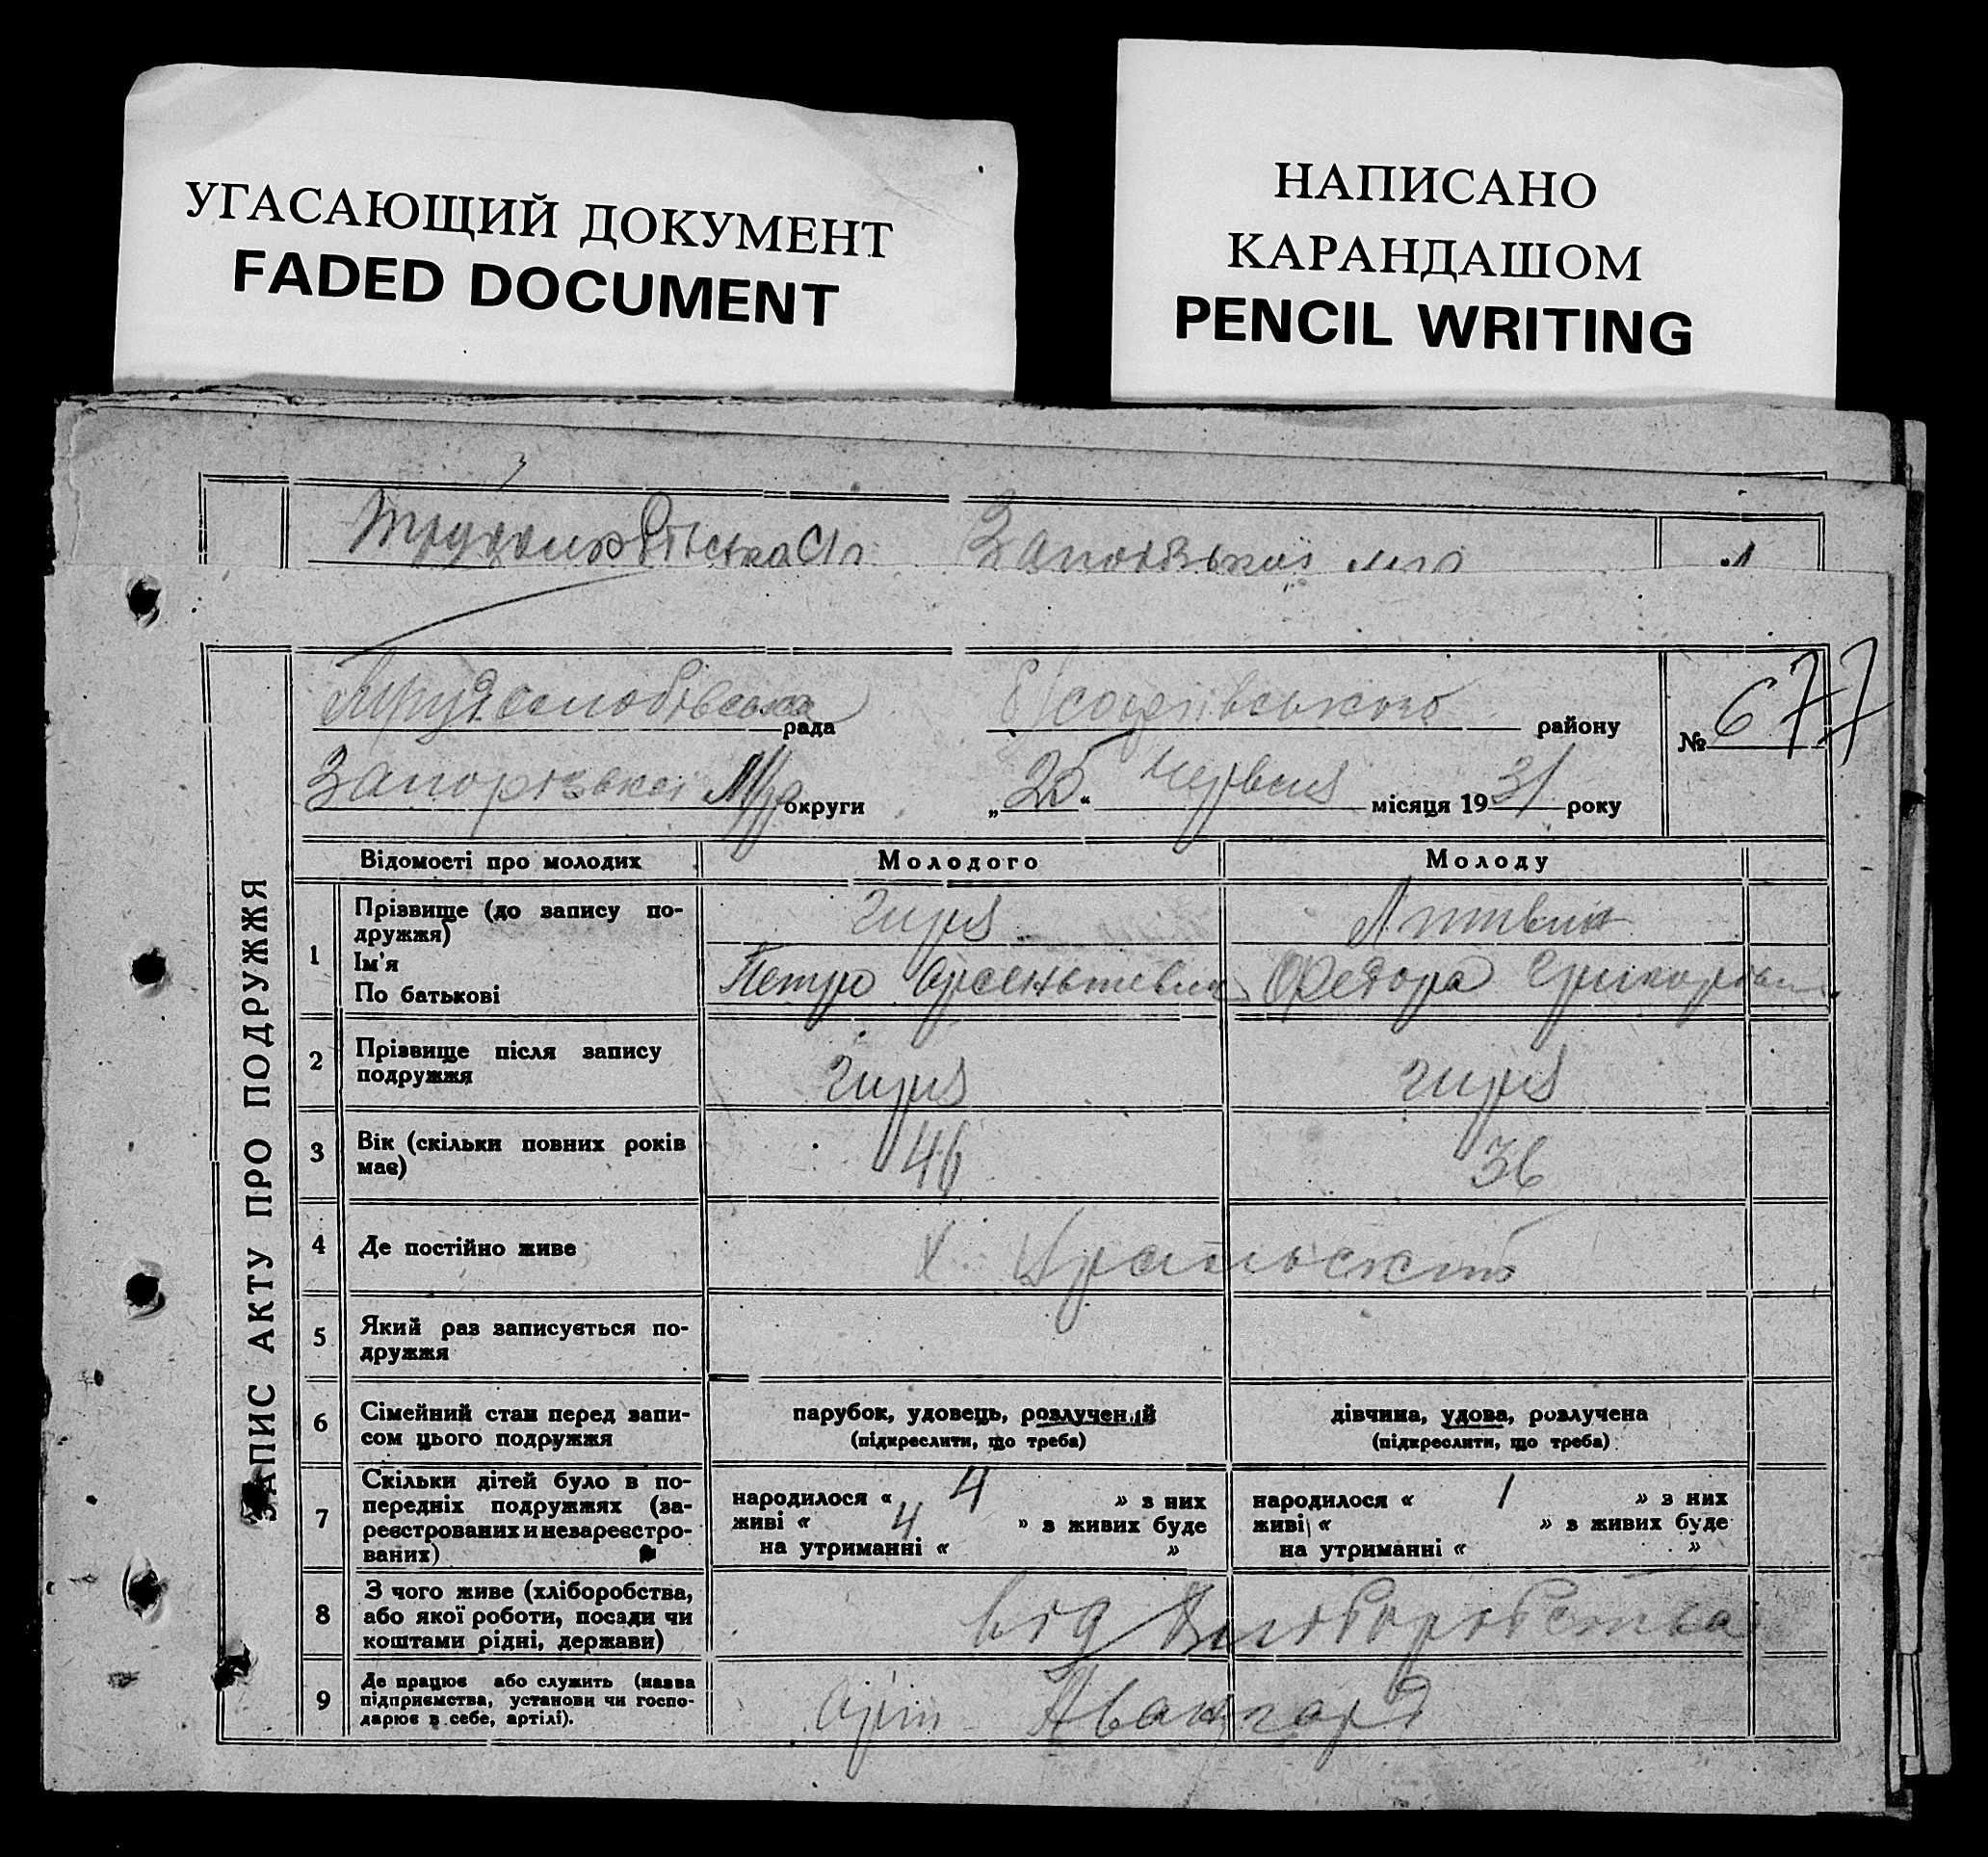 УГАСАЮЩИЙ ДОКУМЕНТ
FADED DOCUMENT
НАПИСАНО
КАРАНДАШОМ
PENCIL WRITING
ЗАПИС АКТУ ПРО ПОДРУЖЖЯ
рада району № 677
округи „25“ Червня місяця 1931 року
Відомості про молодих Молодого Молоду
1 Прізвище (до запису по-
дружжя) Гиря Литвин
Ім'я
По батькові Петро Федора
2 Прізвище після запису
подружжя Гиря Гиря
3 Вік (скільки повних років
має) 46 36
4 Де постійно живе х.
5 Який раз записується по-
дружжя
6 Сімейний стан перед запи-
сом цього подружжя
парубок, удовець, розлучений
(підкреслити, що треба)
дівчина, удова, розлучена
(підкреслити, що треба)
7 Скільки дітей було в по-
передніх подружжях (за-
реєстрованих и незареєстро-
ваних)
народилося « 4 » з них
живі « 4 » з живих буде
на утриманні « »
народилося « 1 » з них
живі « » з живих буде
на утриманні « »
8 З чого живе (хліборобства,
або якої роботи, посади чи
коштами рідні, держави) від хліборобства
9 Де працює або служить (назва
підприємства, установи чи госпо-
дарює в себе, артілі). Авангард